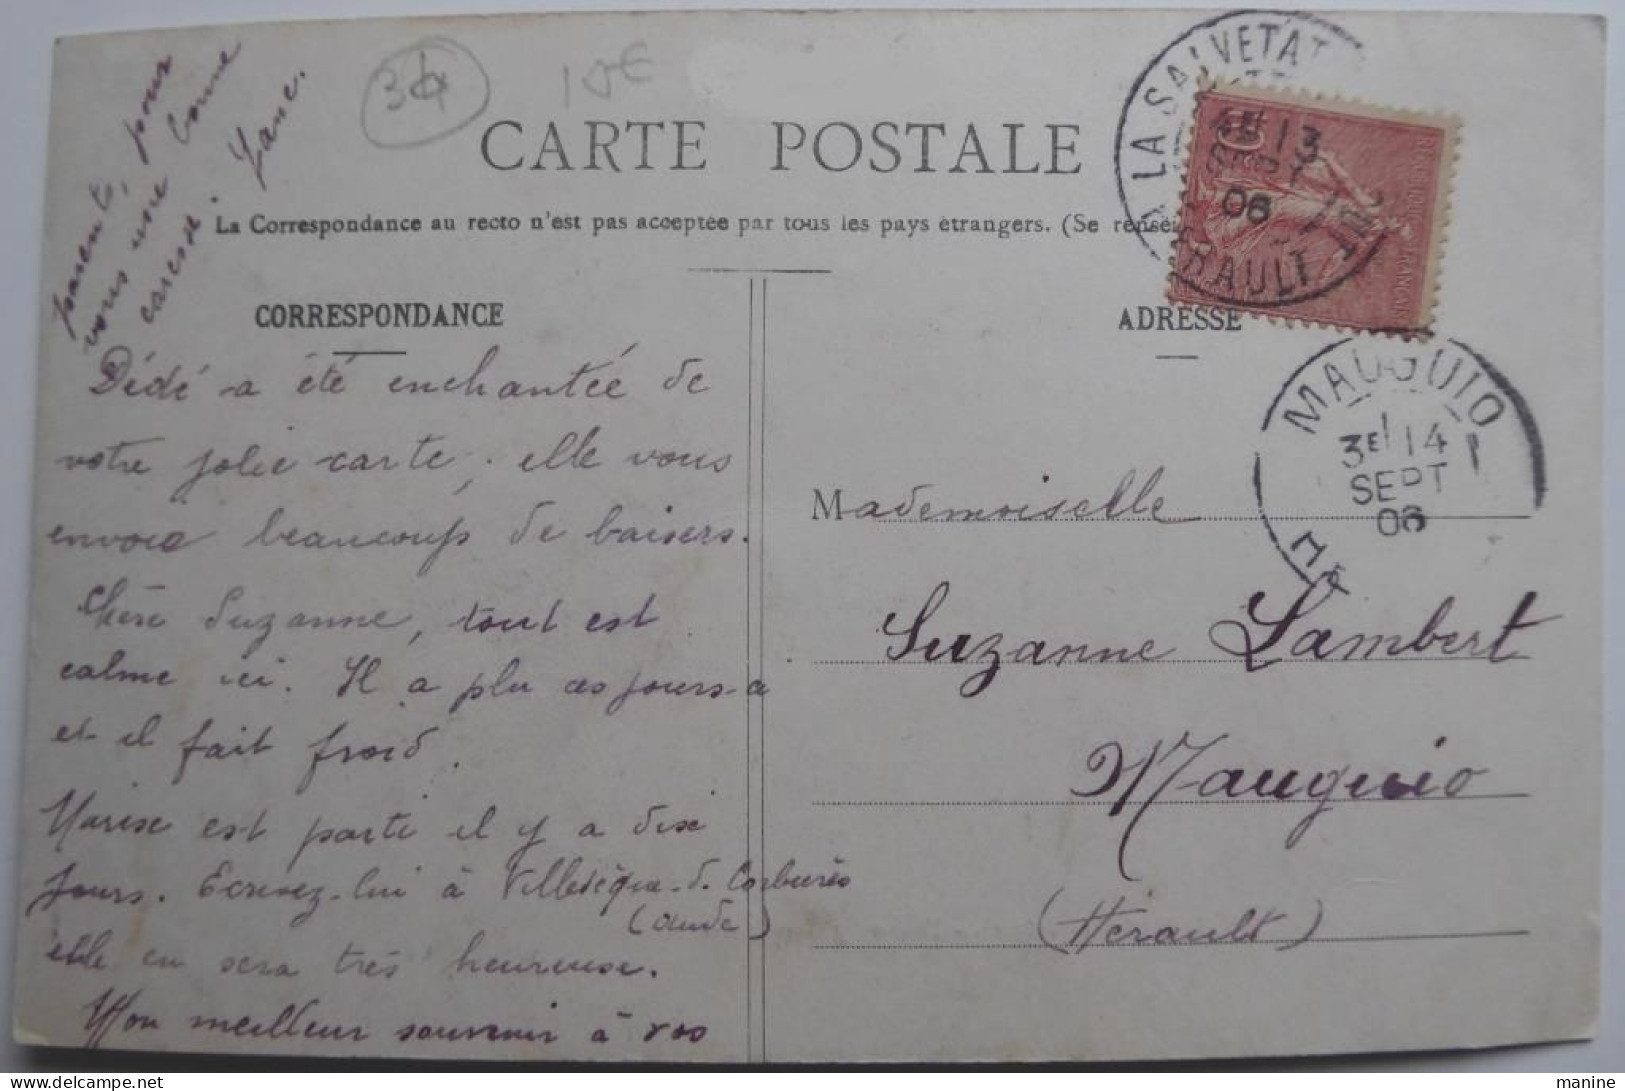 34
10€
CARTE POSTALE
La Correspondance au recto n'est pas acceptée par tous les pays étrangers. (Se rensei
CORRESPONDANCE
Dédé a été enchantée de
votre jolie carte, elle vous
envoie beaucoup de baisers.
Chère Suzanne, tout est
calme ici. Il a plu ces jours-ci
et il fait froid.
est parti il y a dix
jours. Ecrivez-lui à Villesèque-d. Corbières
(Aude)
elle en sera très heureuse.
Mon meilleur souvenir à vos
parents, pour
vous une bonne
caresse.
ADRESSE
Mademoiselle
Suzanne Lambert
Mauguio
(Hérault)
LA SALVETAT
13
SEPT
06
RAULT
MAUGUIO
3E 14
SEPT
06
manine